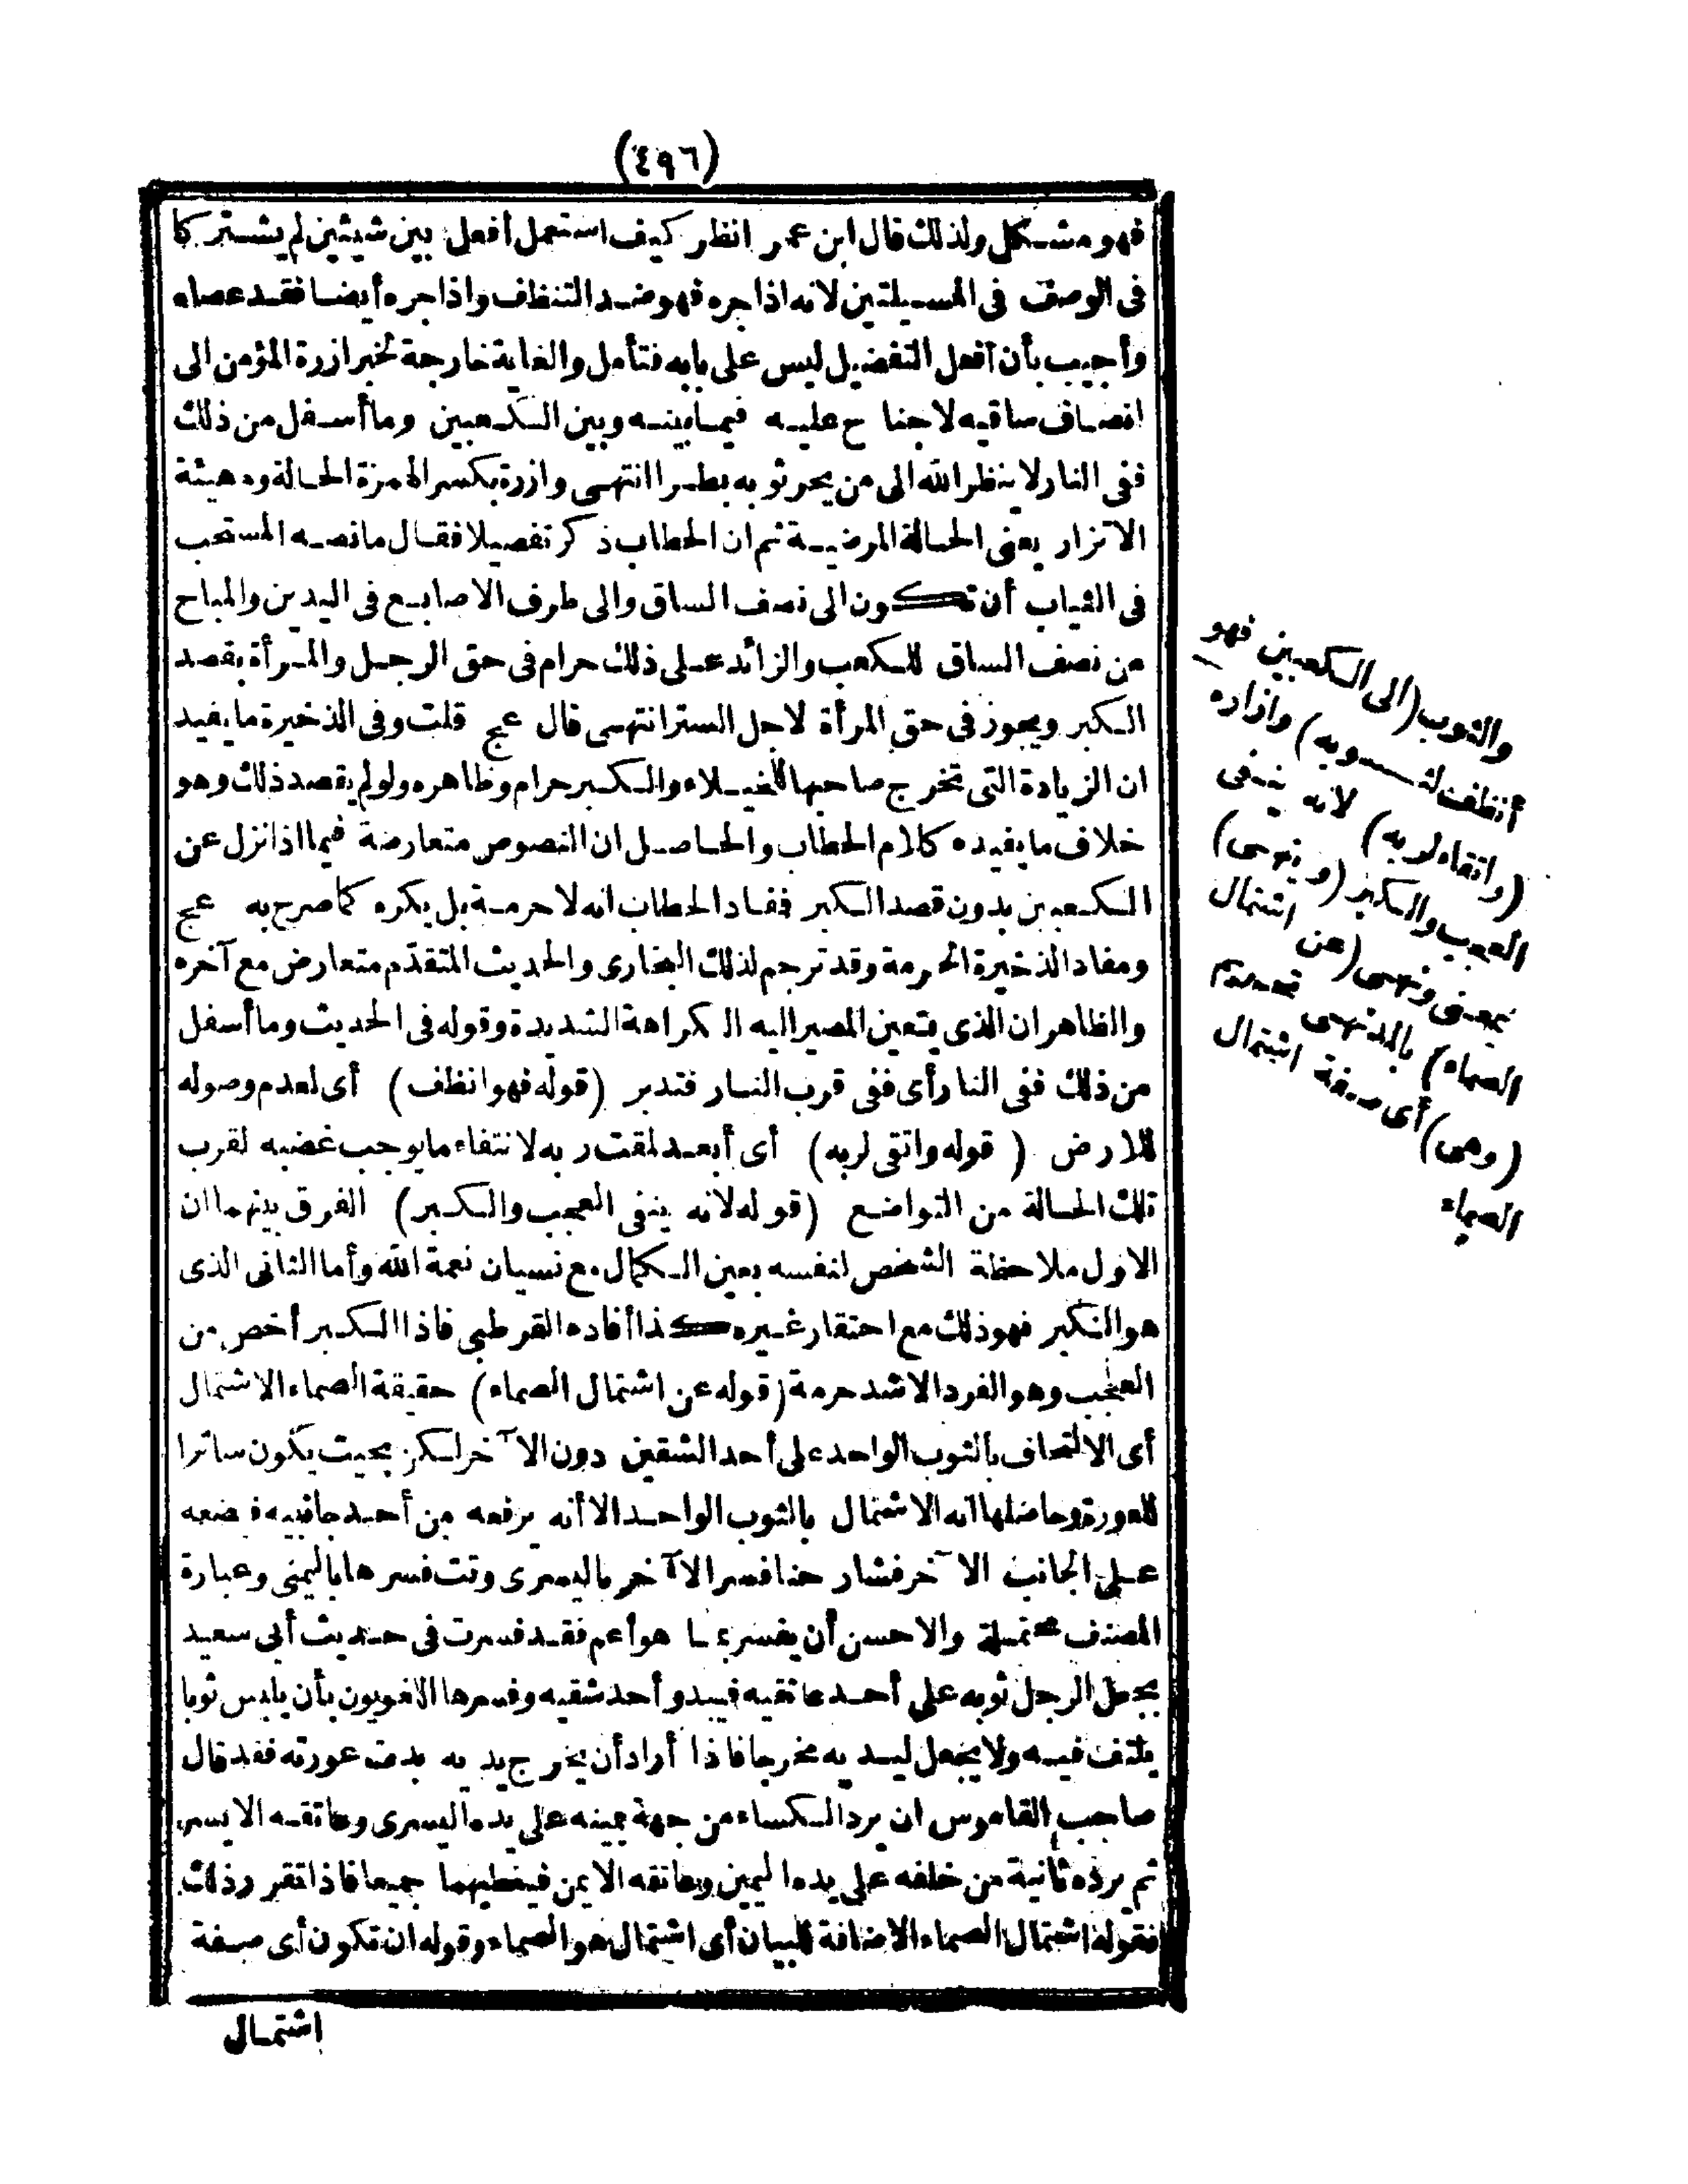 (٤٩٦)
فهو مشكل ولذلك قال ابن عمر انظر كيف استعمل أفعل بين شيئين لم يشتركا
فى الوصف فى المسيلتين لانه اذا جره فهو ضد التنظف واذا جره أيضا فقد عصاه
وأجيب بأن أفعل التفضيل ليس على بابه فتأمل والغاية خارجة لخبر ازرة المؤمن الى
انصاف ساقيه لا جناح عليه فيما بينه وبين الكعبين وما أسفل من ذلك
ففى النار لا ينظر الله الى من يجر ثوبه بطرا انتهى وازرة بكسر الهمزة الحالة وهيئة
الاتزار يعنى الحالة المرضية ثم ان الحطاب ذكر تفصيلا فقال ما نصه المستحب
فى الثياب أن تكون الى نصف الساق والى طرف الاصابع فى اليدين والمباح
من نصف الساق للكعب والزائد على ذلك حرام فى حق الرجل والمرأة بقصد
الكبر ويجوز فى حق المرأة لاجل الستر انتهى قال عج قلت وفى الذخيرة ما يفيد
ان الزيادة التى تخرج صاحبها للخيلاء والكبر حرام وظاهره ولو لم يقصد ذلك وهو
خلاف ما يفيده كلام الحطاب والحاصل ان النصوص متعارضة فيما اذا نزل عن
الكعبين بدون قصد الكبر فمفاد الحطاب انه لا حرمة بل يكره كما صرح به عج
ومفاد الذخيرة الحرمة وقد ترجم لذلك البخارى والحديث المتقدم متعارض مع آخره
والظاهر ان الذى يتعين المصير اليه الكراهة الشديدة وقوله فى الحديث وما أسفل
من ذلك ففى النار أى ففى قرب النار فتدبر (قوله فهو انظف) أى لعدم وصوله
للارض (قوله واتقى لربه) أى أبعد لمقت ربه لانتفاء ما يوجب غضبه لقرب
تلك الحالة من التواضع (قوله لانه ينفى العجب والكبر) الفرق بينهما ان
الاول ملاحظة الشخص لنفسه بعين الكمال مع نسيان نعمة الله وأما الثانى الذى
هو التكبر فهو ذلك مع احتقار غيره كذا أفاده القرطبى فاذا الكبر أخص من
العجب وهو الفرد الاشد حرمة (قوله عن اشتمال الصماء) حقيقة الصماء الاشتمال
أى الالتحاف بالثوب الواحد على أحد الشقين دون الآخر لكن بحيث يكون ساترا
للعورة وحاصلها انه الاشتمال بالثوب الواحد الا أنه يرفعه من أحد جانبيه فيضعه
على الجانب الآخر فشار حنا فسر الآخر باليسرى وتت فسرها باليمنى وعبارة
المصنف محتملة والاحسن أن يفسر بما هو أعم فقد فسرت فى حديث أبى سعيد
بجعل الرجل ثوبه على أحد عاتقيه فيبدو أحد شقيه وفسرها اللغويون بأن يلبس ثوبا
يلتف فيه ولا يجعل ليديه مخرجا فاذا أراد أن يخرج يديه بدت عورته فقد قال
صاحب القاموس ان يرد الكساء من جهة يمينه على يده اليسرى وعاتقه الايسر
ثم يرده ثانية من خلفه على يده اليمين وعاتقه الايمن فيغطيهما جميعا فاذا تقرر ذلك
فقوله اشتمال الصماء الاضافة للبيان أى اشتمال هو الصماء وقوله ان تكون أى صفة
اشتمال
والثوب (الى الكعبين فهو
أنظف لثوبه) وازاره
(واتقاء لربه) لانه ينفى
العجب والكبر (وينهى)
بمعنى ونهى (عن اشتمال
الصماء) بالمد
(وهى) أى صفة اشتمال
الصماء